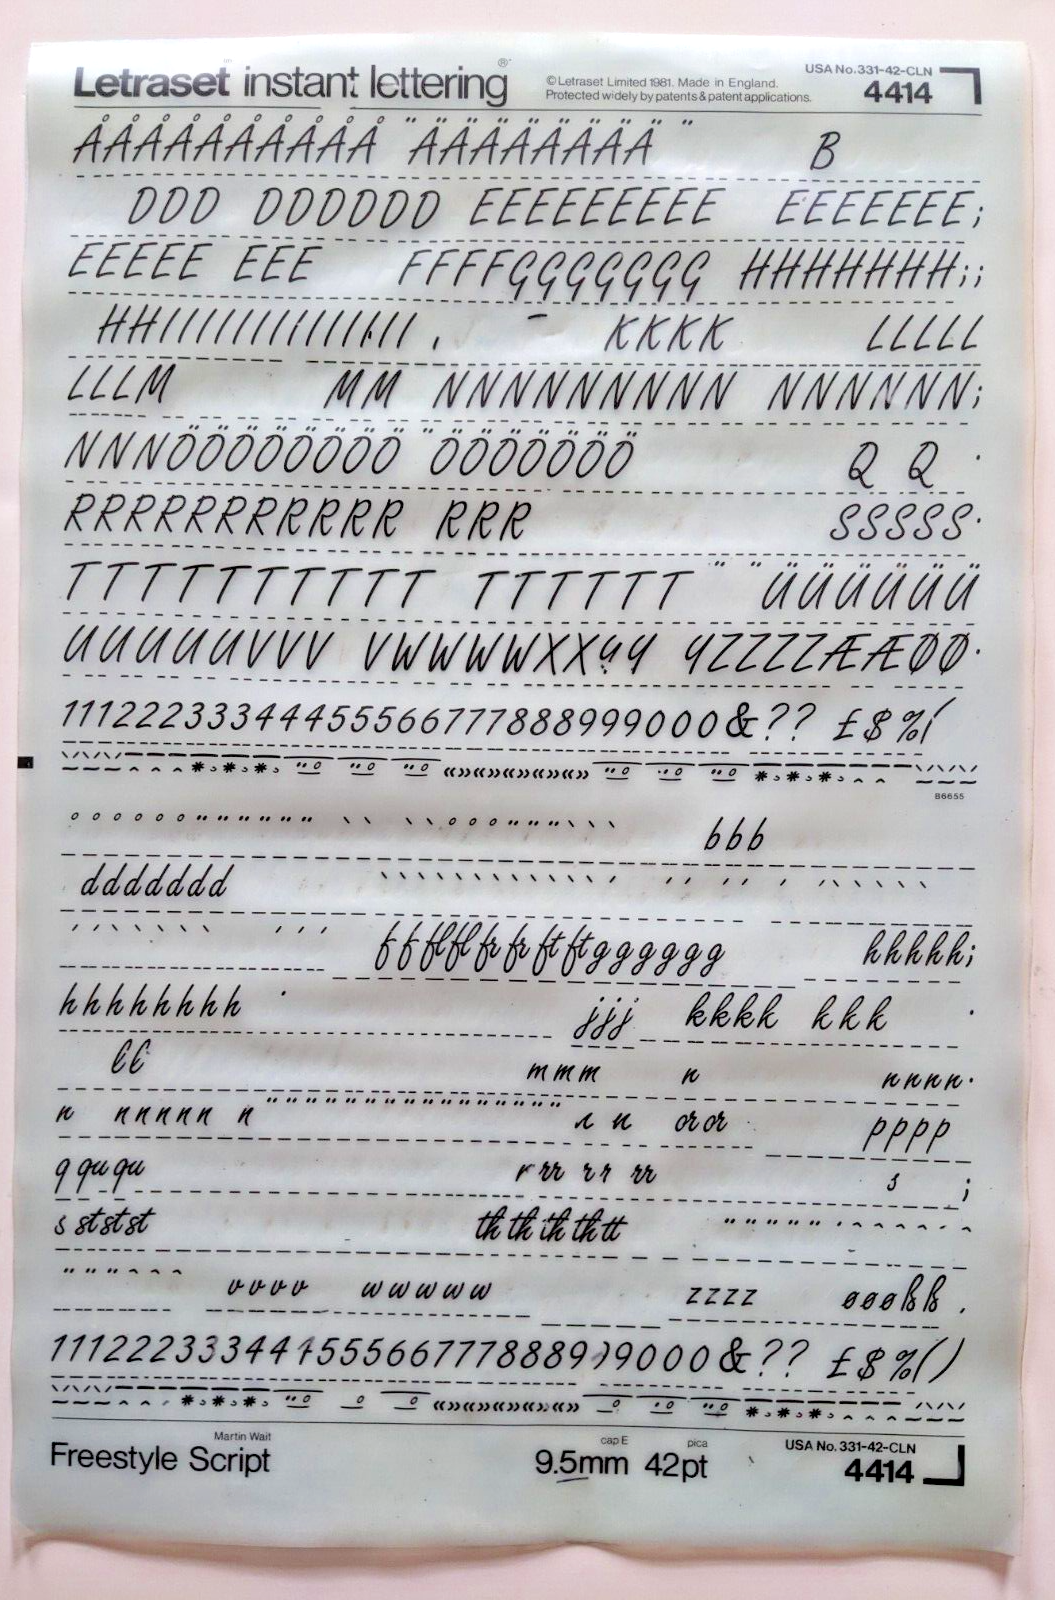 Letraset instant lettering®
©Letraset Limited 1981. Made in England.
Protected widely by patents & patent applications.
USA No. 331-42-CLN
4414
ÅÅÅÅÅÅÅÅÅÅ ¨ÄÄÄÄÄÄÄÄ ¨ B
DDD DDDDDD EEEEEEEEE EEEEEEE;
EEEEE EEE FFFFGGGGGGG HHHHHHH;;
KKKK LLLLL
LLLM MM NNNNNNNNNN NNNNNN;
NNNÖÖÖÖÖÖÖÖ ¨ÖÖÖÖÖÖÖ Q Q ·
RRRRRRRRRRR RRR SSSSS·
TTTTTTTTTTT TTTTTT ¨ ¨ ÜÜÜÜÜÜ
UUUUUVVV VWWWWXXYY YZZZZÆÆØØ·
111222333444555667778889990000&?? £$%(
B6655
bbb
ddddddd
f f fl fl fr fr ft ft gggggg hhhhh;
hhhhhhhh · jjj kkkk kkk ·
ll mmm n nnnn·
n nnnnn n or or pppp
q qu qu r rr rr rr s ;
s st st st th th th th tt
vvvv wwwww zzzz øøøßß .
£$%()
Martin Wait
Freestyle Script
cap E
9.5mm
pica
42pt
USA No. 331-42-CLN
4414